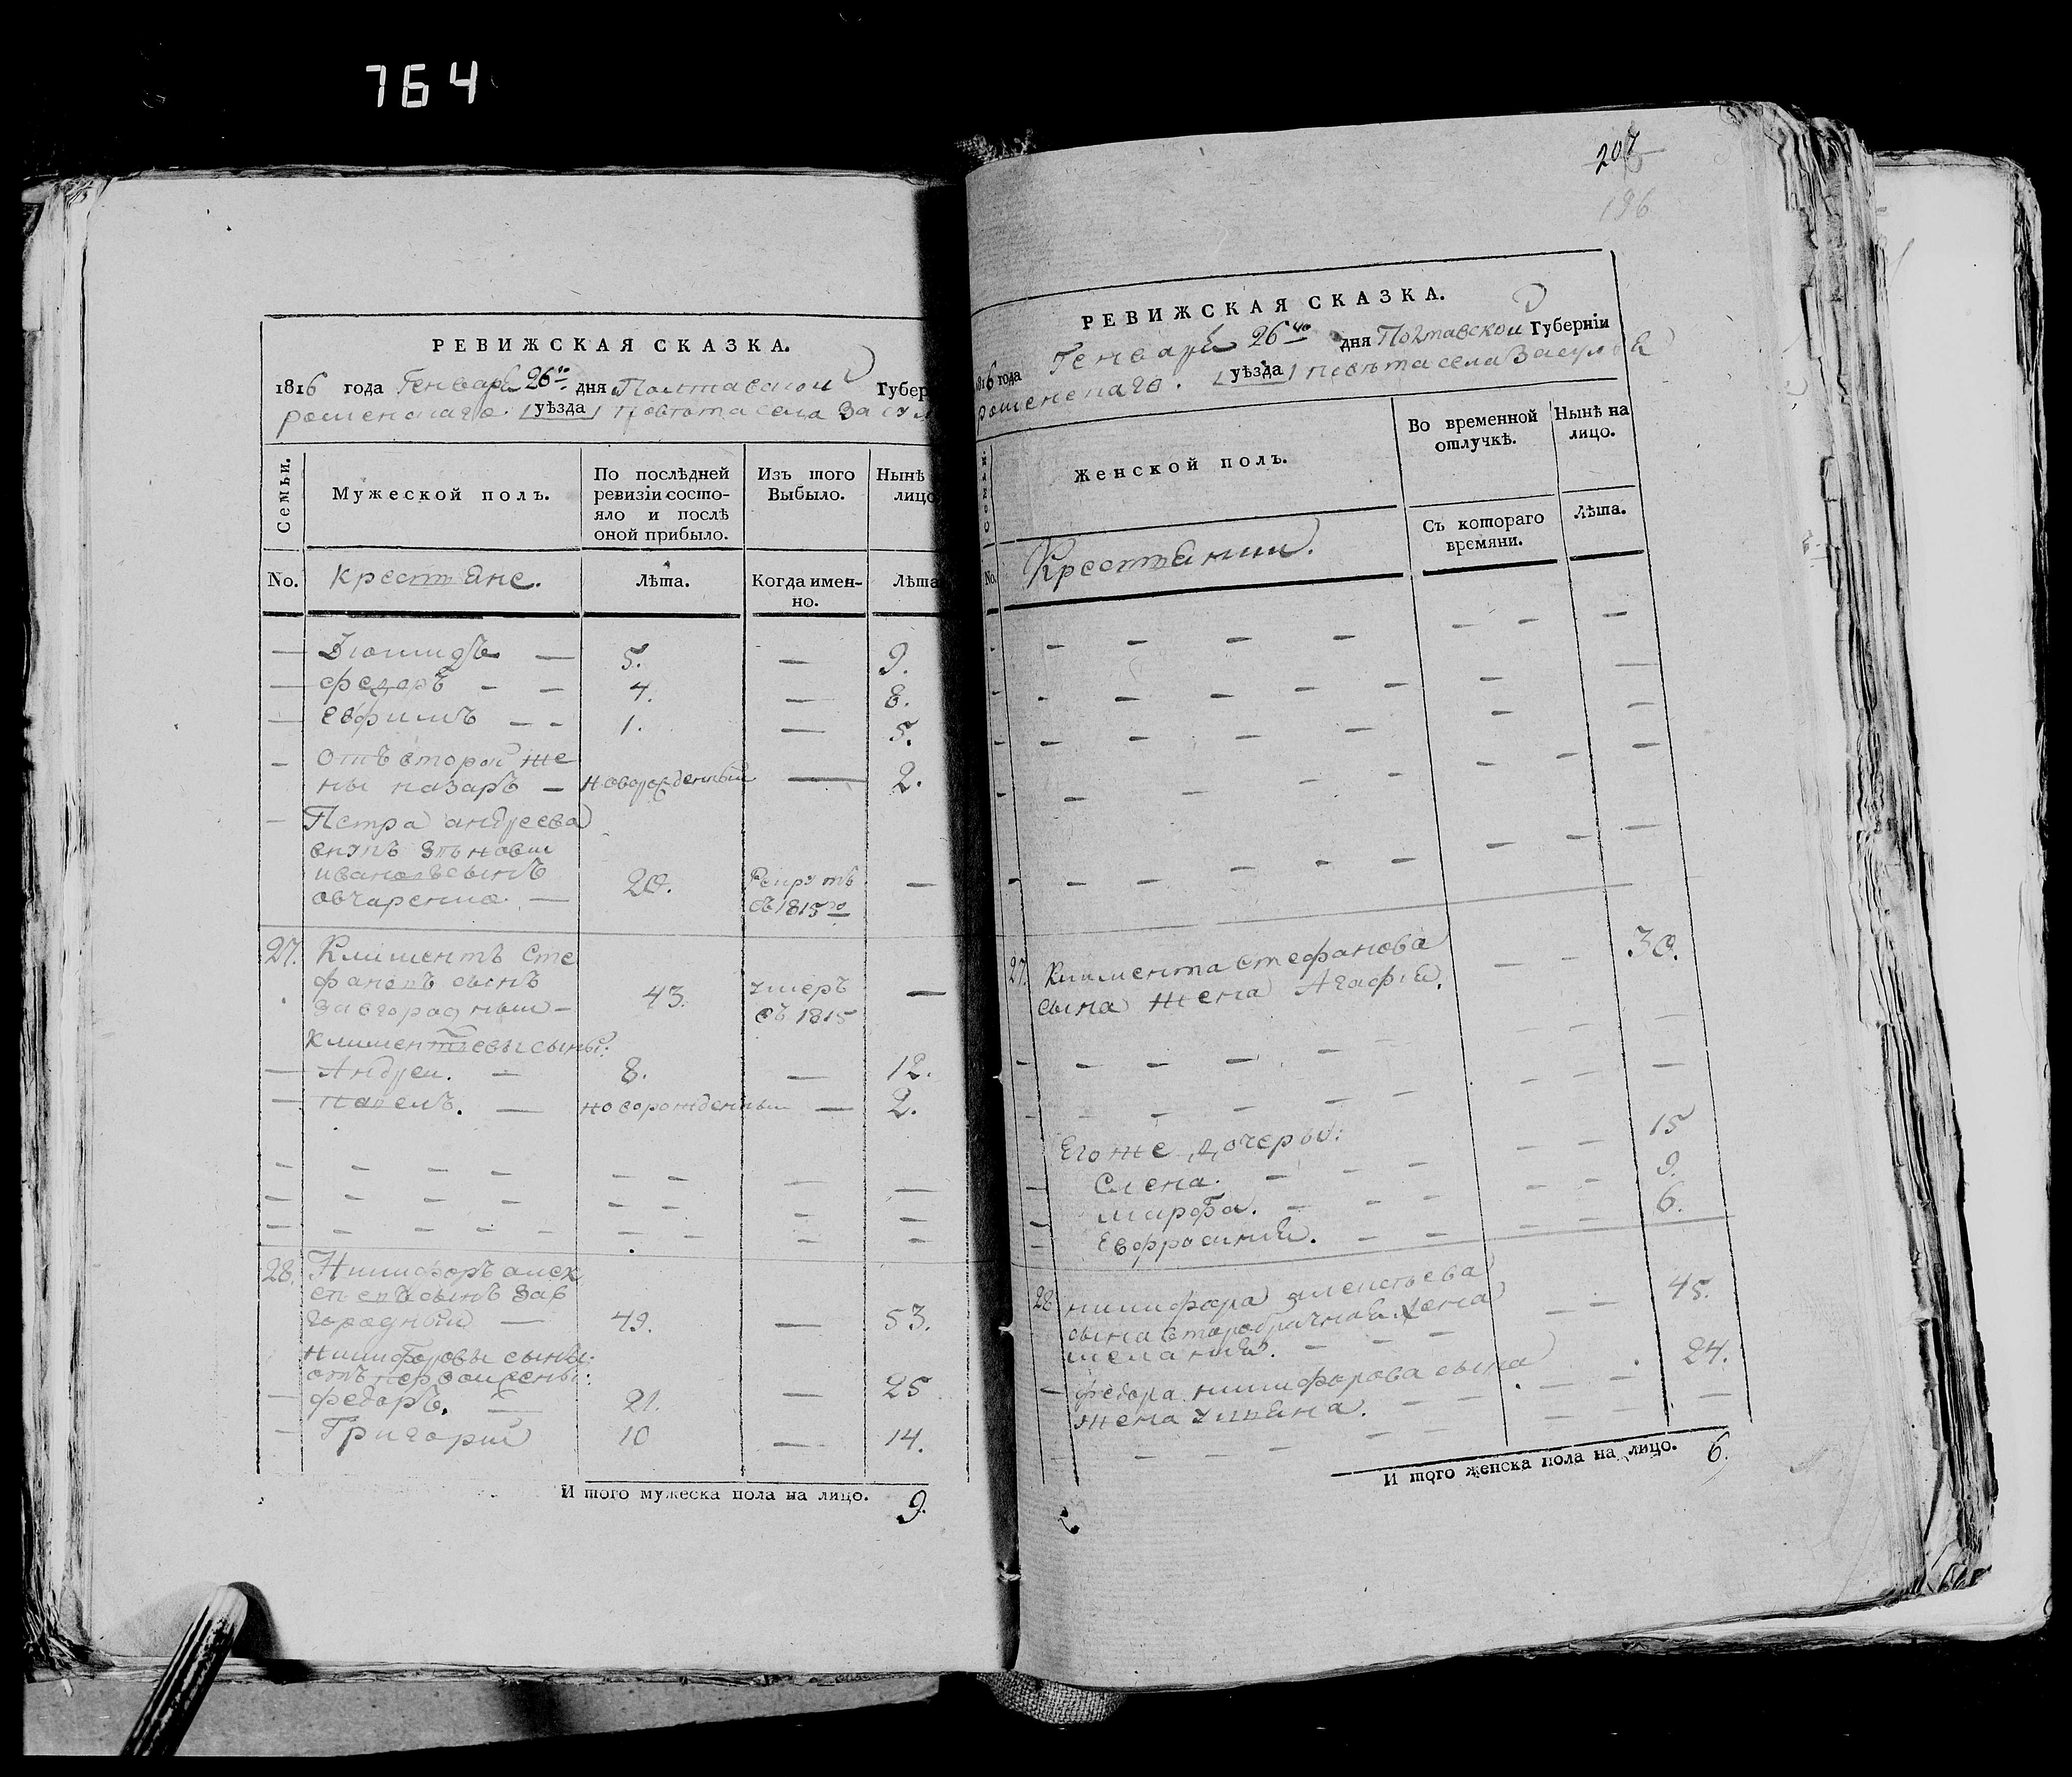 764
РЕВИЖСКАЯ СКАЗКА.
1816 года Генваря 26го дня Полтавской Губер
роменскаго уѣзда повѣта села Засул
Семьи.
Мужеской полъ.
По послѣдней ревизіи состо-
яло и послѣ оной прибыло.
Изъ того Выбыло.
Нынѣ лицо
No.
крестяне.
Лѣта.
Когда имен-
но.
Лѣта
Диомидъ 5. 9.
федоръ 4. 8.
евфимъ 1. 5.
отъ второй же
ны назаръ новорожденный 2.
Петра андреева
ивановъ сынъ
овчаренко 20. Рекрутъ
съ 1815го
27. Климентъ Сте
фановъ сынъ
завгородный 43. умеръ
съ 1815
Климентіевы сыны:
Андрей. 8. 12.
павелъ. новорожденный 2.
28. Никифоръ алек
сеевъ сынъ зав
городный 49. 53.
Никифоровы сыны:
отъ первой жены:
федоръ. 21. 25
Григорий 10 14.
И того мужеска пола на лицо. 9.
207
196
РЕВИЖСКАЯ СКАЗКА.
1816 года Генваря 26го дня Полтавской Губерніи
роменскаго. уѣзда повѣта села Засулья
No.
Женской полъ.
Во временной отлучкѣ.
Нынѣ на лицо.
Крестянки.
Съ котораго времяни.
Лѣта.
27. Климента стефанова
сына жена Агафия. 30.
Его же дочеры:
Елена. 15
марфа. 9.
Евфросиния. 6.
28 никифора алексеева
сына второбрачная жена
мелания. 45.
федора никифорова сына
жена улияна. 24.
И того женска пола на лицо. 6.